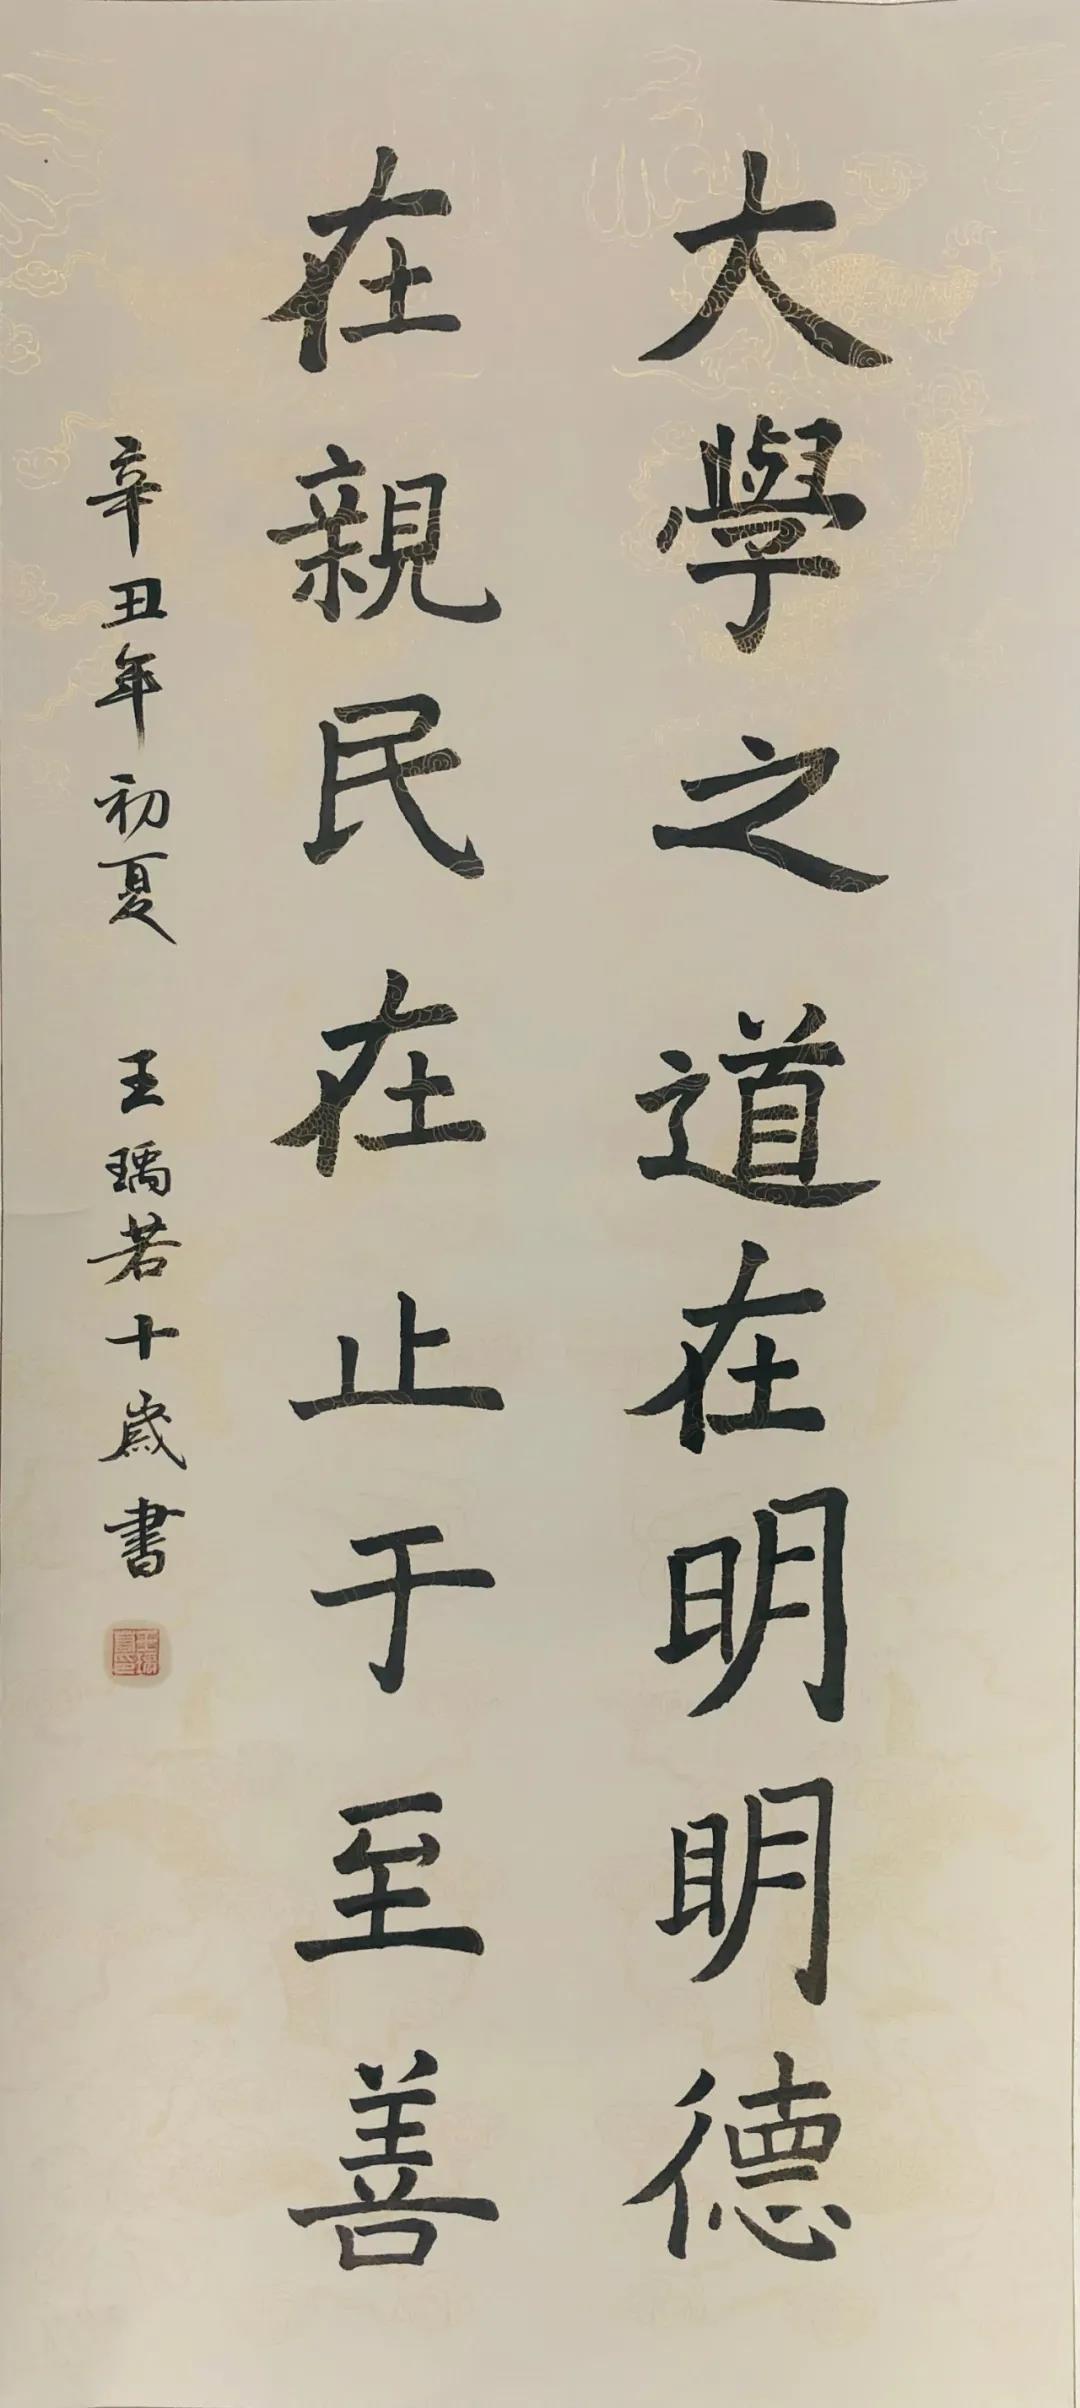 大學之道在明明德
在親民在止于至善
辛丑年初夏 王瑀若十歲書